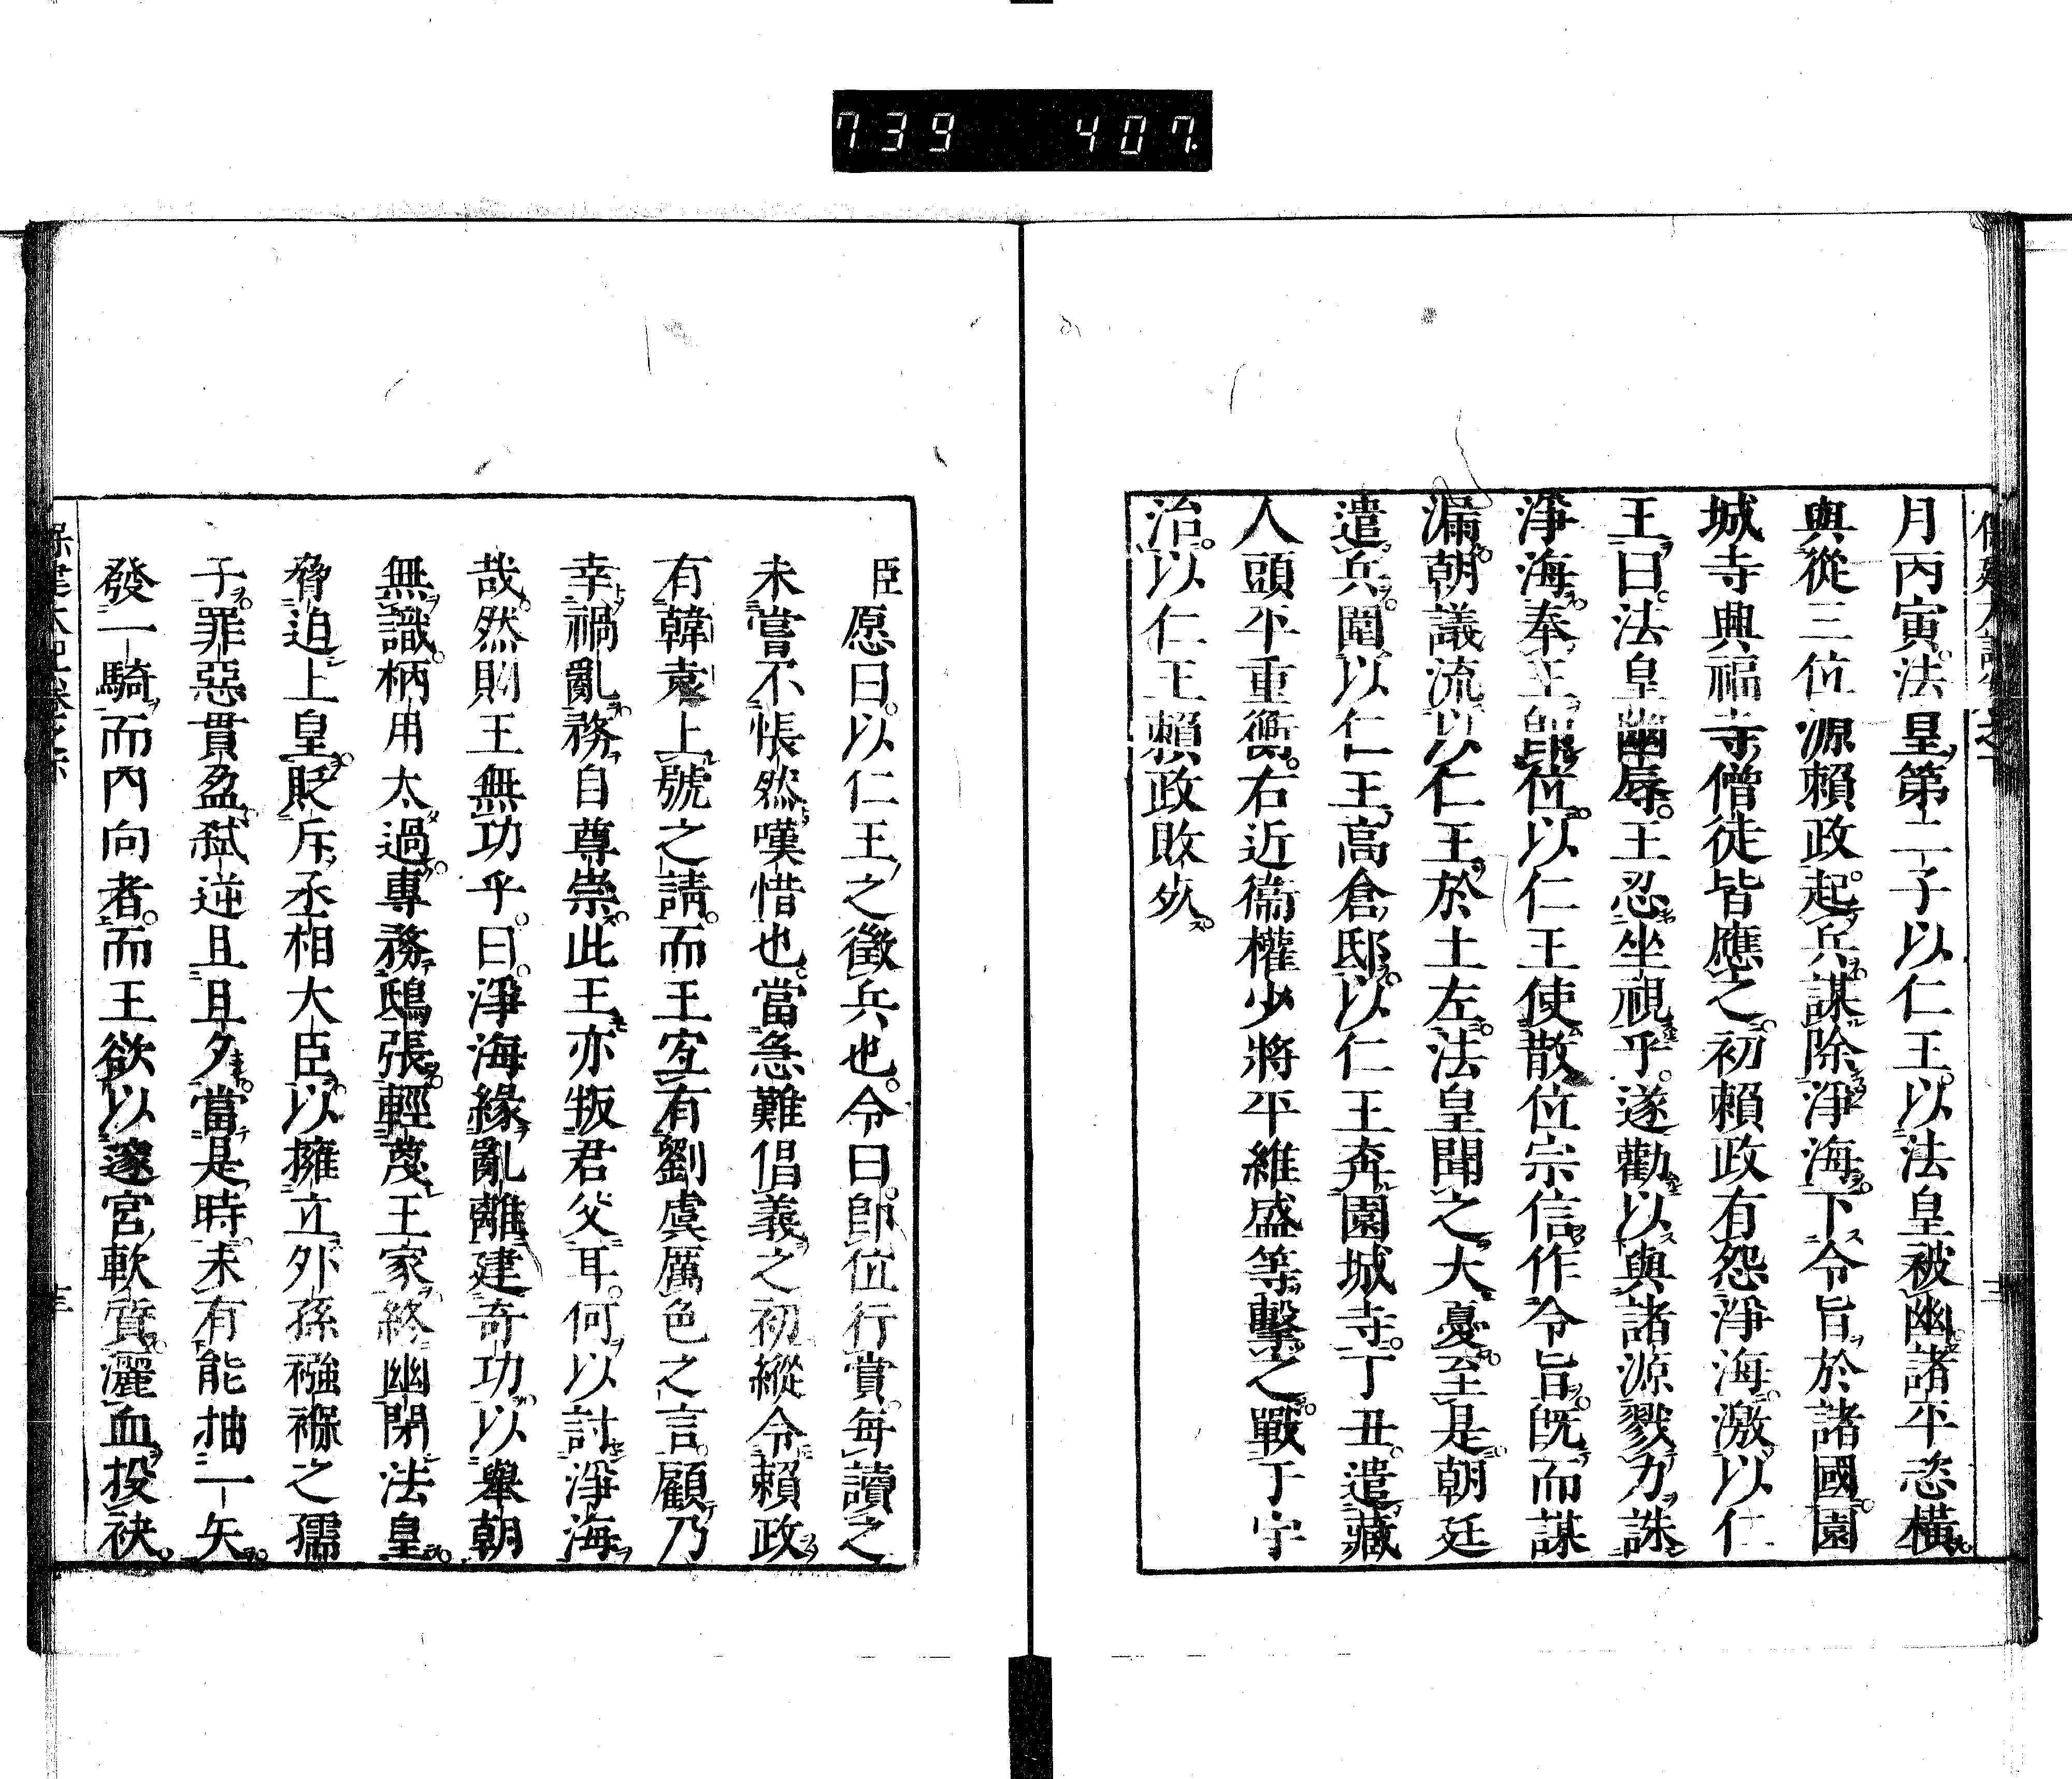 739 407
月丙寅。法皇第二子以仁王。以法皇被幽諸平恣橫。
與從三位源賴政起兵。謀除淨海。下令旨於諸國。園
城寺興福寺僧徒皆應之。初賴政有怨淨海。激以仁
王曰。法皇幽辱。王忍坐視乎。遂勸以與諸源戮力誅
淨海。奉王卽位。以仁王使散位宗信作令旨。旣而謀
漏。朝議流以仁王於土左。法皇聞之大憂。至是朝廷
遣兵圍以仁王高倉邸。以仁王奔園城寺。丁丑。遣藏
人頭平重衡。右近衞權少將平維盛等擊之。戰于宇
治。以仁王賴政敗死。
臣愿曰。以仁王之徵兵也。令曰。卽位行賞。每讀之
未嘗不悵然嘆惜也。當急難倡義之初。縱令賴政
有韓袁上號之請。而王宜有劉虞厲色之言。顧乃
幸禍亂。務自尊崇。此王亦叛君父耳。何以討淨海
哉。然則王無功乎。曰。淨海緣亂離建奇功。以舉朝
無識。柄用太過。專務鴟張。輕蔑王家。終幽閉法皇。
脅迫上皇。貶斥丞相大臣。以擁立外孫襁褓之孺
子。罪惡貫盈。弑逆且旦夕。當是時。未有能抽一矢。
發一騎。而內向者。而王欲以邃宮軟質。灑血投袂。